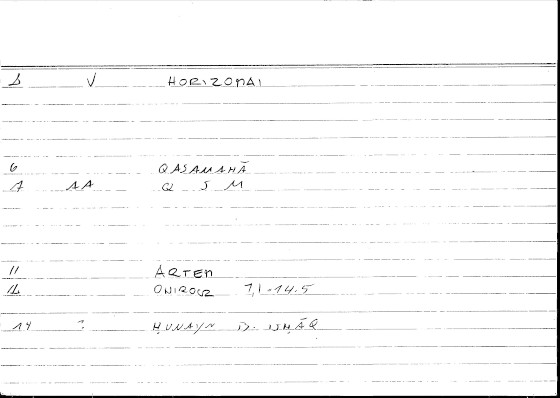 1 V HORIZOMAI
6 QASAMAHĀ
7 AA Q S M
11 ARTEM
12 ONIROCR 1,1-14.5
14 ? ḤUNAYN B. ISḤĀQ